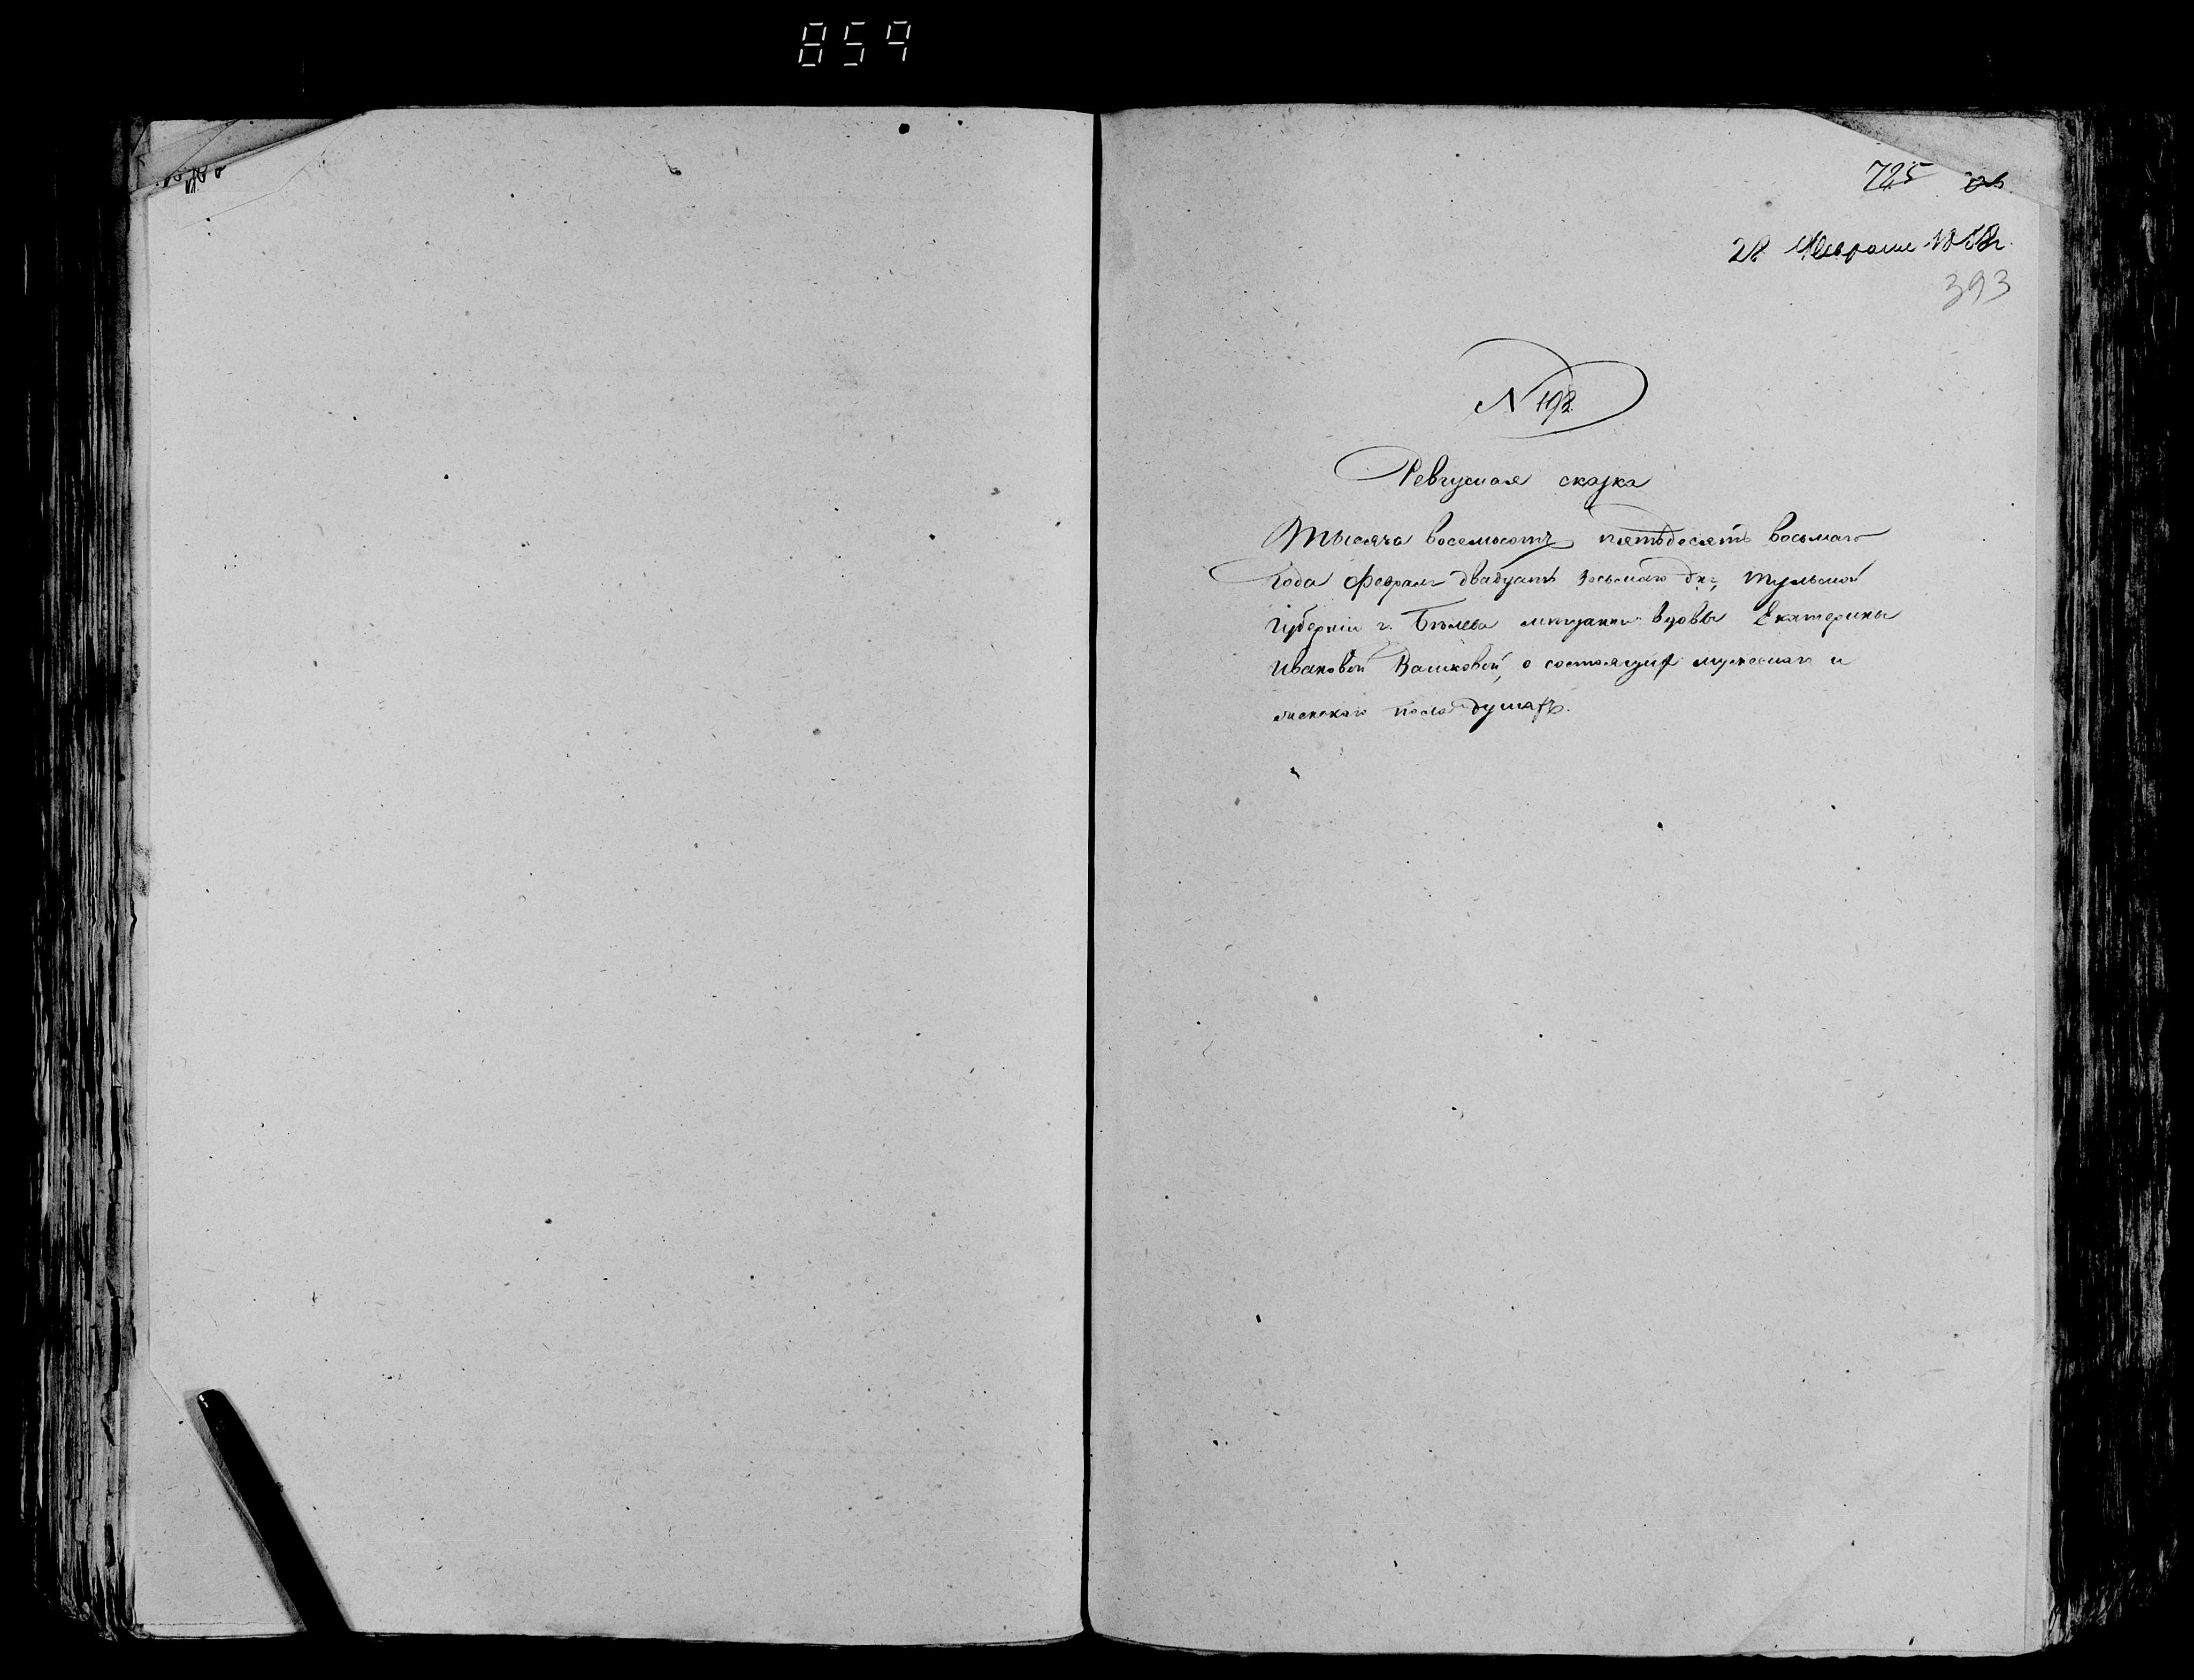 859
725
28 Февраля 1858г.
393
N 198
Ревизская сказка
Тысяча восемьсотъ пятьдесятъ восьмаго
года февраля двадцать восьмаго дня, Тульской
губерніи г. Бѣлева мѣщанки вдовы Екатерины
Ивановой о состоящихъ мужескаго и
женскаго пола душахъ.